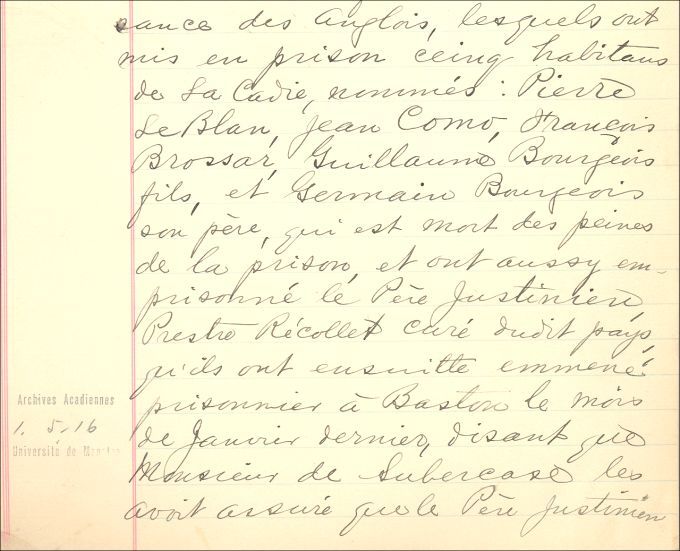 sance des Anglois, lesquels ont
mis en prison ceinq habitans
de La Cadie, nommés : Pierre
Le Blan, Jean Como, François
Brossar, Guillaume Bourgeois
fils, et Germain Bourgeois
son père, qui est mort des peines
de la prison, et ont aussy em-
prisonné le Père Justinien,
Prestre Récollet curé dudit pays,
qu'ils ont ensuitte emmené
prisonnier à Baston le mois
de Janvier dernier, disant que
Monsieur de Subercase les
avoit assuré que le Père Justinien
Archives Acadiennes
1. 5-16
Université de